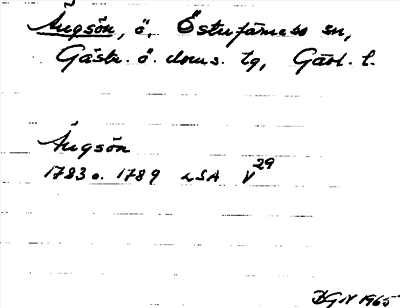 Ängsön, ö, Österfärnebo sn,
Gästr. ö. doms. tg, Gävl. l.
Ängsön
1783 o. 1789 LSA V 29
DGN 1965